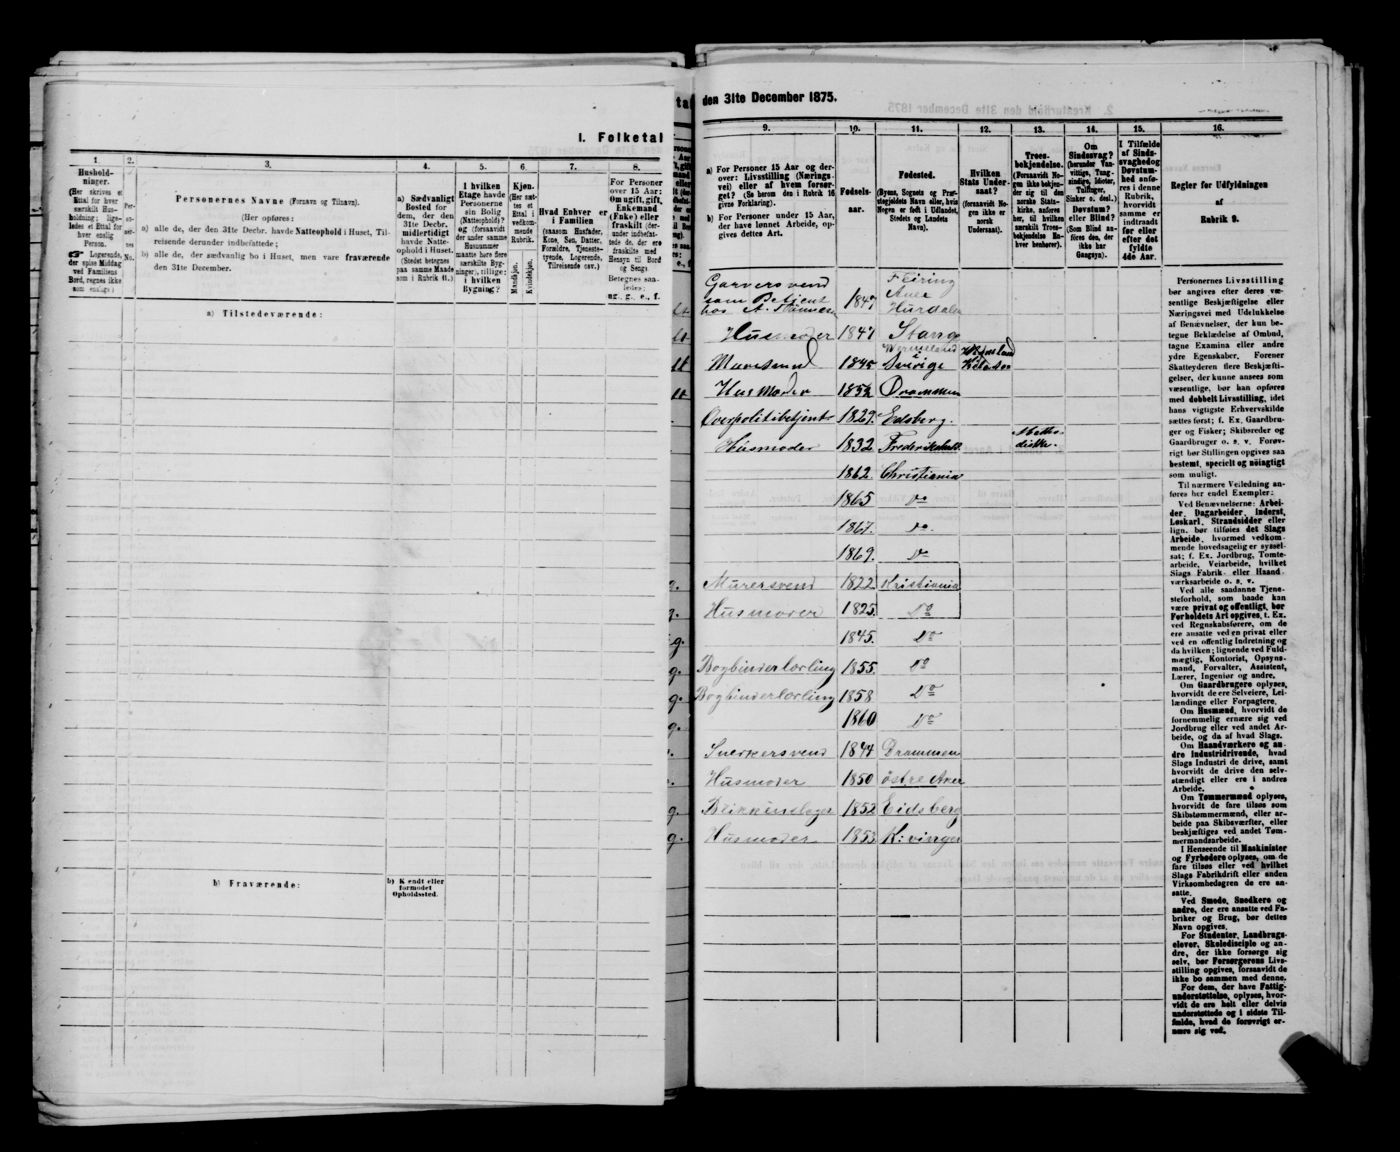 I. Folketal
den 31te December 1875.
1.
Hushold-
ninger.
(Her skrives et
Ettal for hver
særskilt Hus-
holdning; lige-
ledes et Ettal for
hver enslig
Person.
☛ Logerende,
der spise Middag
ved Familiens
Bord, regnes ikke
som enslige.)
2.
Per-
No.
3.
Personernes Navne (Fornavn og Tilnavn).
(Her opføres:
a) alle de, der den 31te Decbr. havde Natteophold i Huset, Til-
reisende derunder indbefattede;
b) alle de, der sædvanlig bo i Huset, men vare fraværende
den 31te December.
a) Tilstedeværende:
b) Fraværende:
4.
a) Sædvanligt
Bosted for
dem, der den
31te Decbr.
midlertidigt
havde Natte-
ophold i Huset.
(Stedet betegnes
paa samme Maade
som i Rubrik 11.)
b) Kjendt eller
formodet
Opholdssted.
5.
I hvilken
Etage havde
Personerne
sin Bolig
(Natteophold)?
og (forsaavidt
der under samme
Husnummer
maatte høre flere
særskilte Byg-
ninger), tillige:
i hvilken
Bygning?
6.
Kjøn.
(Her sæt-
tes et
Ettal i
vedkom-
mende
Rubrik.
Mandkjøn.
Kvindekjøn.
7.
Hvad Enhver er
i Familien
(saasom Husfader,
Kone, Søn, Datter,
Forældre, Tjeneste-
tyende, Logerende,
Tilreisende osv.)
8.
For Personer
over 15 Aar:
Om ugift, gift,
Enkemand
(Enke) eller
fraskilt (der-
under indbefat-
tede de, der ere
fraskilte med
Hensyn til Bord
og Seng)
Betegnes saa-
ledes:
ug., g., e., f.
9.
a) For Personer 15 Aar og der-
over: Livsstilling (Nærings-
vei) eller af hvem forsør-
get? (Se herom den i Rubrik 16
givne Forklaring).
b) For Personer under 15 Aar,
der have lønnet Arbeide, op-
gives dettes Art.
10.
Fødsels-
aar.
11.
Fødested.
(Byens, Sognets og Præ-
stegjeldets Navn eller, hvis
Nogen er født i Udlandet,
Stedets og Landets
Navn).
12.
Hvilken
Stats Under-
saat?
(forsaavidt No-
gen ikke er
norsk
Undersaat).
13.
Troes-
bekjendelse.
(Forsaavidt No-
gen ikke bekjen-
der sig til den
norske Stats-
kirke, anføres
her, til hvilken
særskilt Troes-
bekjendelse En-
hver henhører).
14.
Om
Sindssvag?
(herunder Van-
vittige, Tung-
sindige, Idioter,
Tullinger,
Sinker o. desl.)
Døvstum?
eller Blind?
(Som Blind an-
føres den, der
ikke har
Gangsyn).
15.
I Tilfælde
af Sinds-
svaghed og
Døvstum-
hed anfø-
res i denne
Rubrik,
hvorvidt
samme er
indtraadt
før eller
efter det
fyldte
4de Aar.
16.
Regler for Udfyldningen
af
Rubrik 9.
Garversvend
som Patient
hos A. 1847 Feiring
Hurdalen
Husmoder 1847 Stange
Muresvend 1845 Wermeland
i
Sverige
Husmoder 1852 Drammen
Overpolitibetjent 1829. Eidsberg.
Husmoder 1832 Frederikshald Metho-
diske.
1862. Christiania
1865 Do
1867. Do.
1869. Do
g. Murersvend 1822 Kristiania
g. Husmoder 1825. Do
g. 1845. Do
g. Bogbinderlærling 1855. Do
g. Bogbinderlærling 1858 Do
g. 1860 Do
Snerkersvend 1844 Drammen
Husmoder 1850 østre Aker
g. Blikkenslager 1852 Eidsberg
g. Husmoder 1853 K:vinger
Personernes Livsstilling
bør angives efter deres væ-
sentlige Beskjæftigelse eller
Næringsvei med Udelukkelse
af Benævnelser, der kun be-
tegne Beklædelse af Ombud,
tagne Examina eller andre
ydre Egenskaber. Forener
Skatteyderen flere Beskjæfti-
gelser, der kunne ansees som
væsentlige, bør han opføres
med dobbelt Livsstilling, idet
hans vigtigste Erhvervskilde
sættes først; f. Ex. Gaardbru-
ger og Fisker; Skibsreder og
Gaardbruger o. s. v. Forøv-
rigt bør Stillingen opgives saa
bestemt, specielt og nöiagtigt
som muligt.
Til nærmere Veiledning an-
føres her endel Exempler:
Ved Benævnelserne: Arbei-
der, Dagarbeider, Inderst,
Løskarl, Strandsidder eller
lign. bør tilføies det Slags
Arbeide, hvormed vedkom-
mende hovedsagelig er syssel-
sat; f. Ex. Jordbrug, Tomte-
arbeide, Veiarbeide, hvilket
Slags Fabrik- eller Haand-
værksarbeide o. s. v.
Ved alle saadanne Tjene-
steforhold, som baade kan
være privat og offentligt, bør
Forholdets Art opgives, f. Ex.
ved Regnskabsførere, om de
ere ansatte ved en privat eller
ved en offentlig Indretning og
da hvilken; lignende ved Fuld-
mægtig, Kontorist, Opsyns-
mand, Forvalter, Assistent,
Lærer, Ingeniør og andre.
Om Gaardbrugere oplyses,
hvorvidt de ere Selveiere, Lei-
lændinge eller Forpagtere.
Om Husmænd, hvorvidt de
fornemmelig ernære sig ved
Jordbrug eller ved andet Ar-
beide, og da af hvad Slags.
Om Haandværkere og an-
dre Industridrivende, hvad
Slags Industri de drive, samt
hvorvidt de drive den selv-
stændigt eller ere i andres
Arbeide.
Om Tømmermænd oplyses,
hvorvidt de fare tilsøs som
Skibstømmermænd, eller ar-
beide paa Skibsværfter, eller
beskjæftiges ved andet Tøm-
mermandsarbeide.
I Henseende til Maskinister
og Fyrbødere oplyses, om de
fare tilsøs eller ved hvilket
Slags Fabrikdrift eller anden
Virksomhedsgren de ere an-
satte.
Ved Smede, Snedkere og
andre, der ere ansatte ved Fa-
briker og Brug, bør dettes
Navn opgives.
For Studenter, Landbrugs-
elever, Skoledisciple og an-
dre, der ikke forsørge sig
selv, bør Forsørgerens Livs-
stilling opgives, forsaavidt de
ikke bo sammen med denne.
For dem, der have Fattig-
understøttelse, oplyses, hvor-
vidt de ere helt eller delvis
understøttede og i sidste Til-
fælde, hvad de forøvrigt er-
nære sig ved.